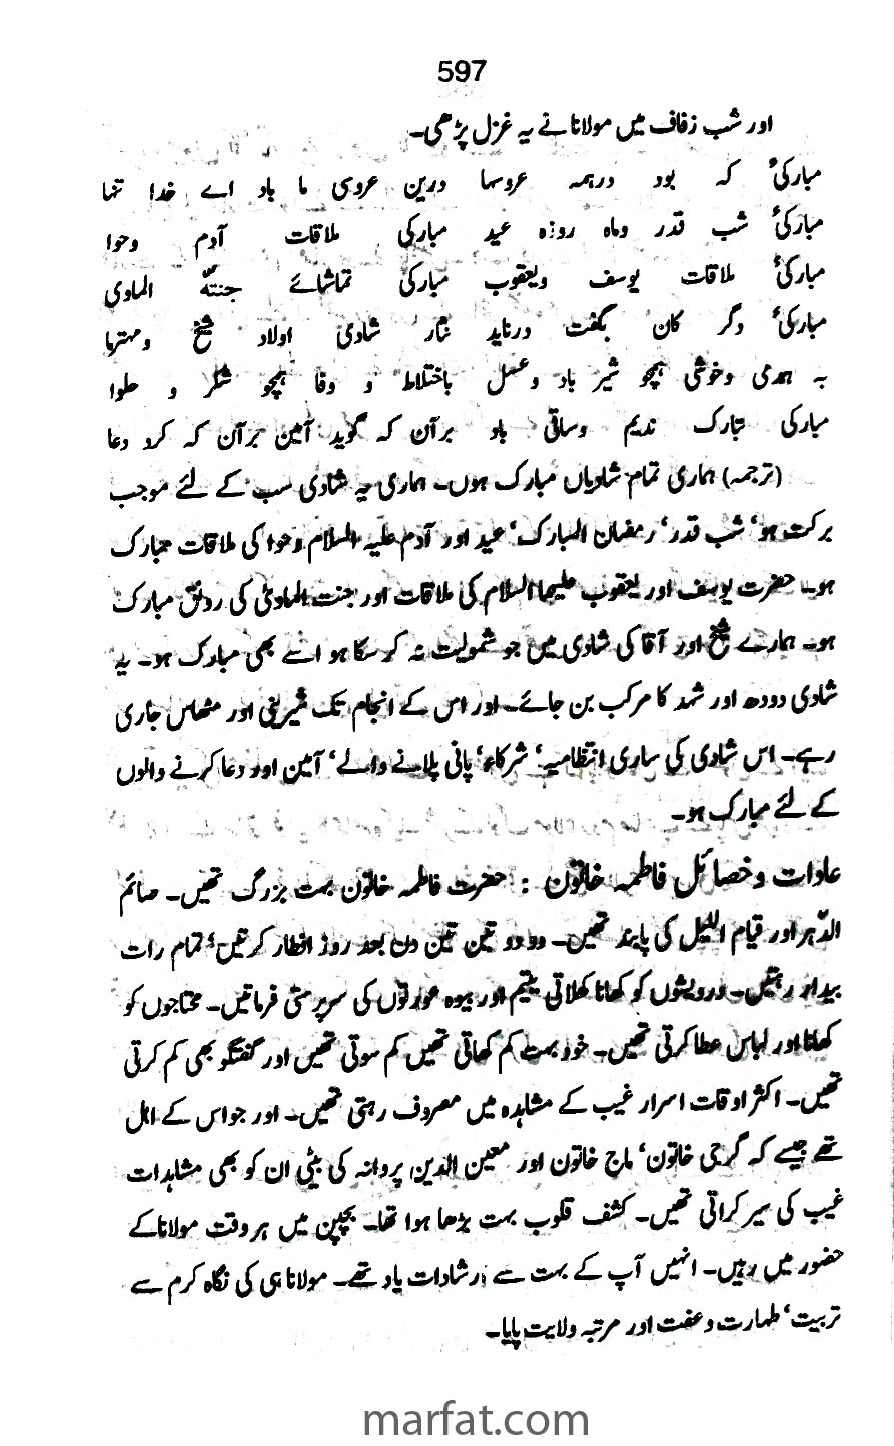 597
اور شب زفاف میں مولانا نے یہ غزل پڑھی۔
مبارکیٔ کہ بود درہمہ عروسہا درین عروسی ما باد اے خدا تنہا
مبارکیٔ شب قدر وماہ روزہ عید مبارکی ملاقات آدم وحوا
مبارکیٔ ملاقات یوسف ویعقوب مبارکی تماشائے جنتہ الماوی
مبارکیٔ دگر کان بگفت درناید نثار شادی اولاد شیخ ومہترہا
بہ ہمدمی وخوشی ہمچو شیر باد وعسل باختلاط و وفا ہمچو شکر و حلوا
مبارکی تبارک ندیم وساقی باد برآن کہ گوید آمین برآن کہ کرد دعا
(ترجمہ) ہماری تمام شادیاں مبارک ہوں۔ ہماری یہ شادی سب کے لئے موجب
برکت ہو‘ شب قدر‘ رمضان المبارک‘ عید اور آدم علیہ السلام وحوا کی ملاقات مبارک
ہو۔ حضرت یوسف اور یعقوب علیہما السلام کی ملاقات اور جنت الماویٰ کی رونق مبارک
ہو۔ ہمارے شیخ اور آقا کی شادی میں جو شمولیت نہ کر سکا ہو اسے بھی مبارک ہو۔ یہ
شادی دودھ اور شہد کا مرکب بن جائے۔ اور اس کے انجام تک شیرینی اور مٹھاس جاری
رہے۔ اس شادی کی ساری انتظامیہ‘ شرکاء‘ پانی پلانے والے‘ آمین اور دعا کرنے والوں
کے لئے مبارک ہو۔
عادات وخصائل فاطمہ خاتون : حضرت فاطمہ خاتون بہت بزرگ تھیں۔ صائم
الدّہر اور قیام اللیل کی پابند تھیں۔ دو دو تین تین دن بعد روز افطار کرتیں‘ تمام رات
بیدار رہتیں۔ درویشوں کو کھانا کھلاتی یتیم اور بیوہ عورتوں کی سرپرستی فرماتیں۔ محتاجوں کو
کھانا اور لباس عطا کرتی تھیں۔ خود بہت کم کھاتی تھیں کم سوتی تھیں اور گفتگو بھی کم کرتی
تھیں۔ اکثر اوقات اسرار غیب کے مشاہدہ میں مصروف رہتی تھیں۔ اور جو اس کے اہل
تھے جیسے کہ گرجی خاتون‘ ماج خاتون اور معین الدین پروانہ کی بیٹی ان کو بھی مشاہدات
غیب کی سیر کراتی تھیں۔ کشف قلوب بہت بڑھا ہوا تھا۔ بچپن میں ہر وقت مولانا کے
حضور میں رہیں۔ انہیں آپ کے بہت سے ارشادات یاد تھے۔ مولانا ہی کی نگاہ کرم سے
تربیت‘ طہارت و عفت اور مرتبہ ولایت پایا۔
marfat.com